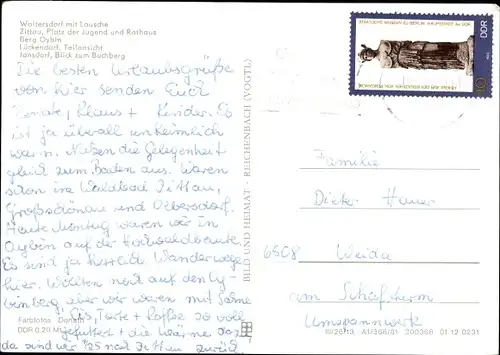 Waltersdorf mit Lausche
Zittau, Platz der Jugend und Rathaus
Berg Oybin
Lückendorf, Teilansicht
Jonsdorf, Blick zum Buchberg
Die besten Urlaubsgrüße
von hier senden Euch
Renate, Klaus + Kinder. Es
ist ja überall unheimlich
warm. Nutzen die Gelegenheit
gleich zum Baden aus. Waren
schon im Waldbad Zittau,
Großschönau und Olbersdorf.
Heute Montag waren wir in
Oybin auf der Hochwaldbaude.
Es sind ja herrliche Wanderwege
hier. Wollten noch auf den Oy-
binberg, aber wir waren mit Sahne
Eis, Torte + Kaffee so voll
gefuttert + die Wärme dazu
da sind wir nach Zittau zurück.
Farbfotos: Donath
DDR 0,20 M
BILD UND HEIMAT · REICHENBACH (VOGTL)
STAATLICHE MUSEEN ZU BERLIN, HAUPTSTADT der DDR
DDR
10
Familie
Dieter
6508 Weida
am Schafturm
Umspannwerk
III/26/13 A1/366/81 200366 01 12 0231